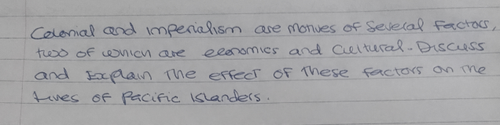 Colonial and imperialism are motives of Several factors,
two of which are economics and Cultural. Discuss
and Explain The effect of These factors on The
Lives of Pacific Islanders.